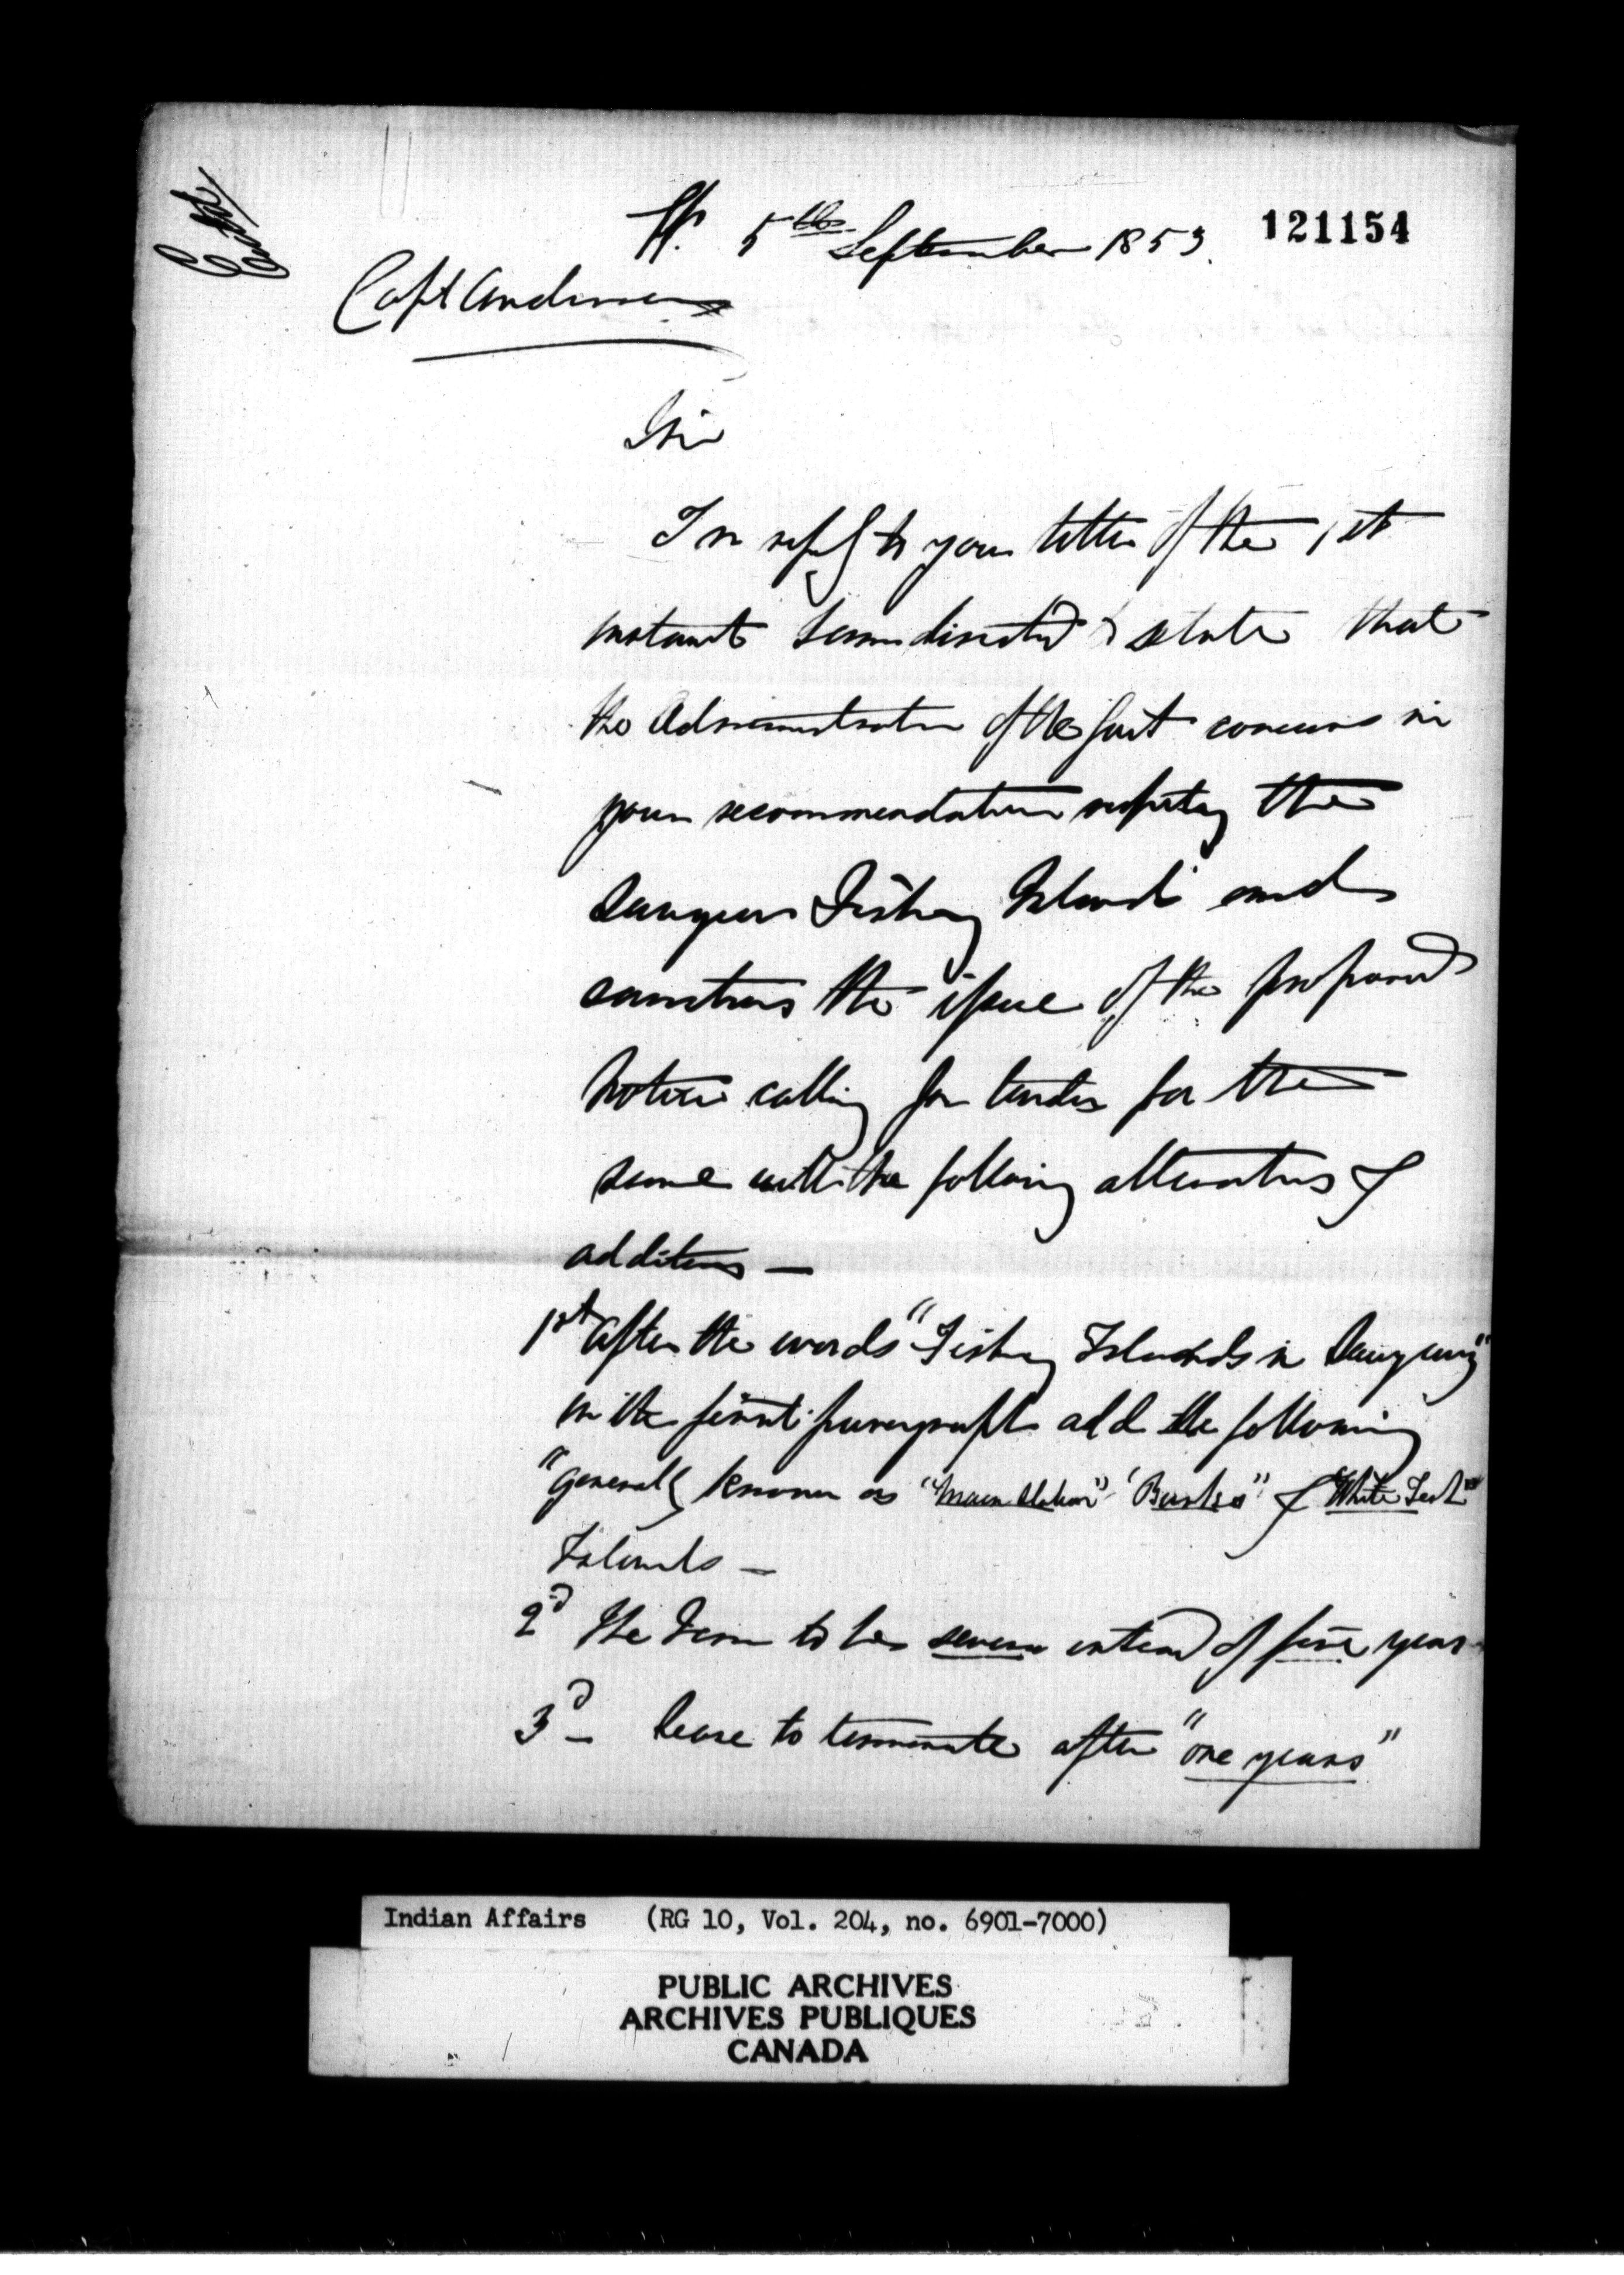 121154
5th September 1853.
Capt Anderson
Sir
In reply to your letter of the 1st
instant I am directed to state that
the Administrator of the Govt concurs in
your recommendation respecting the
Saugeen Fishing Islands and
sanctions the issue of the proposed
Notice calling for tenders for the
same with the following alterations &
additions —
1st After the words "Fishing Islands in Saugeeng"
in the first paragraph add the following
"generally known as "Main Station" "Burke's" & "White Fish"
Islands —
2d The Term to be seven instead of five years
3d — Lease to terminate after "one years"
Indian Affairs (RG 10, Vol. 204, no. 6901-7000)
PUBLIC ARCHIVES
ARCHIVES PUBLIQUES
CANADA